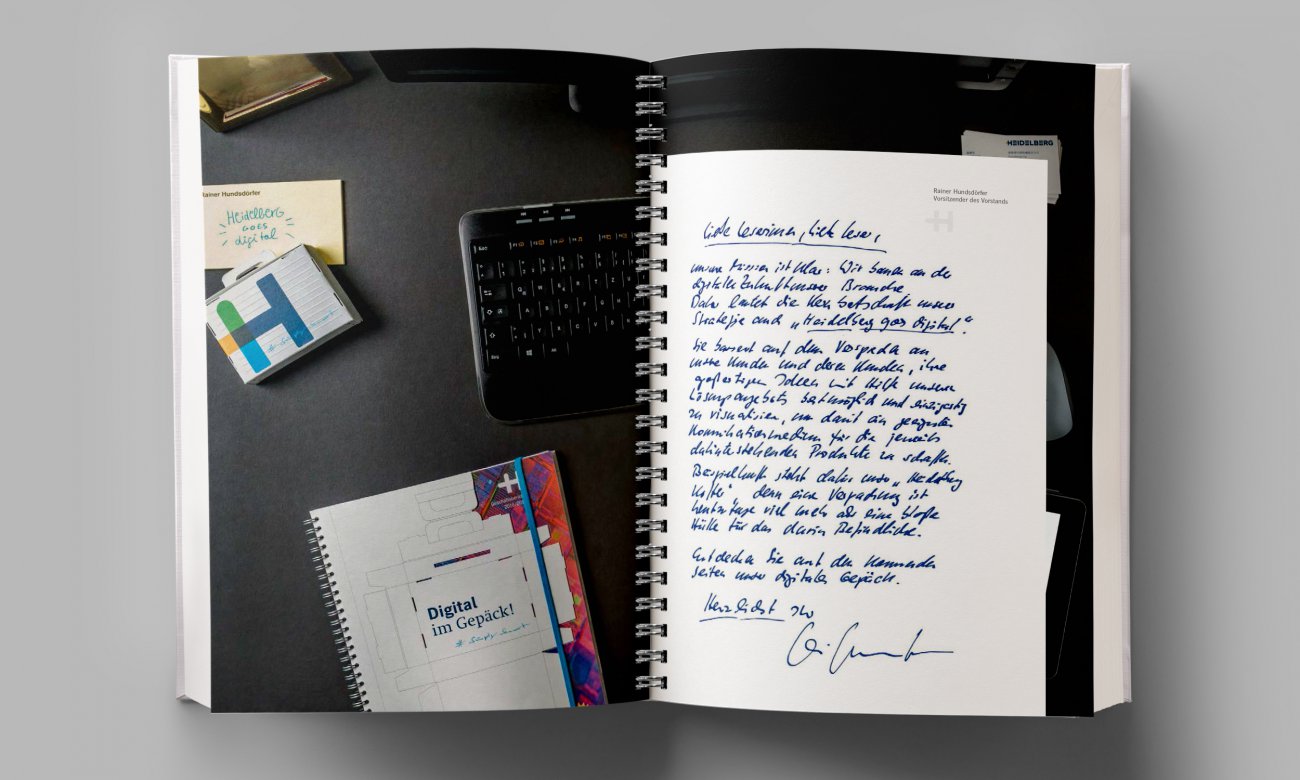 Rainer Hundsdörfer
Heidelberg
GOES
digital
# Simply Smart
Digital
im Gepäck!
# Simply Smart
HEIDELBERG
Rainer Hundsdörfer
Vorsitzender des Vorstands
Liebe Leserinnen, liebe Leser,
unsere Mission ist klar: Wir bauen an der
digitalen Zukunft unserer Branche
Daher lautet die Kernbotschaft unserer
Strategie auch „Heidelberg goes digital“.
Sie basiert auf dem Versprechen an
unsere Kunden und deren Kunden, ihre
großartigen Ideen mit Hilfe unseres
Lösungsangebots bestmöglich und einzigartig
zu visualisieren, um damit ein geeignetes
Kommunikationsmedium für die jeweils
dahinterstehenden Produkte zu schaffen.
Beispielhaft steht dafür unser „Heidelberg
Koffer“, denn eine Verpackung ist
heutzutage viel mehr als eine bloße
Hülle für das darin Befindliche.
Entdecken Sie auf den kommenden
Seiten unser digitales Gepäck.
Herzlichst Ihr